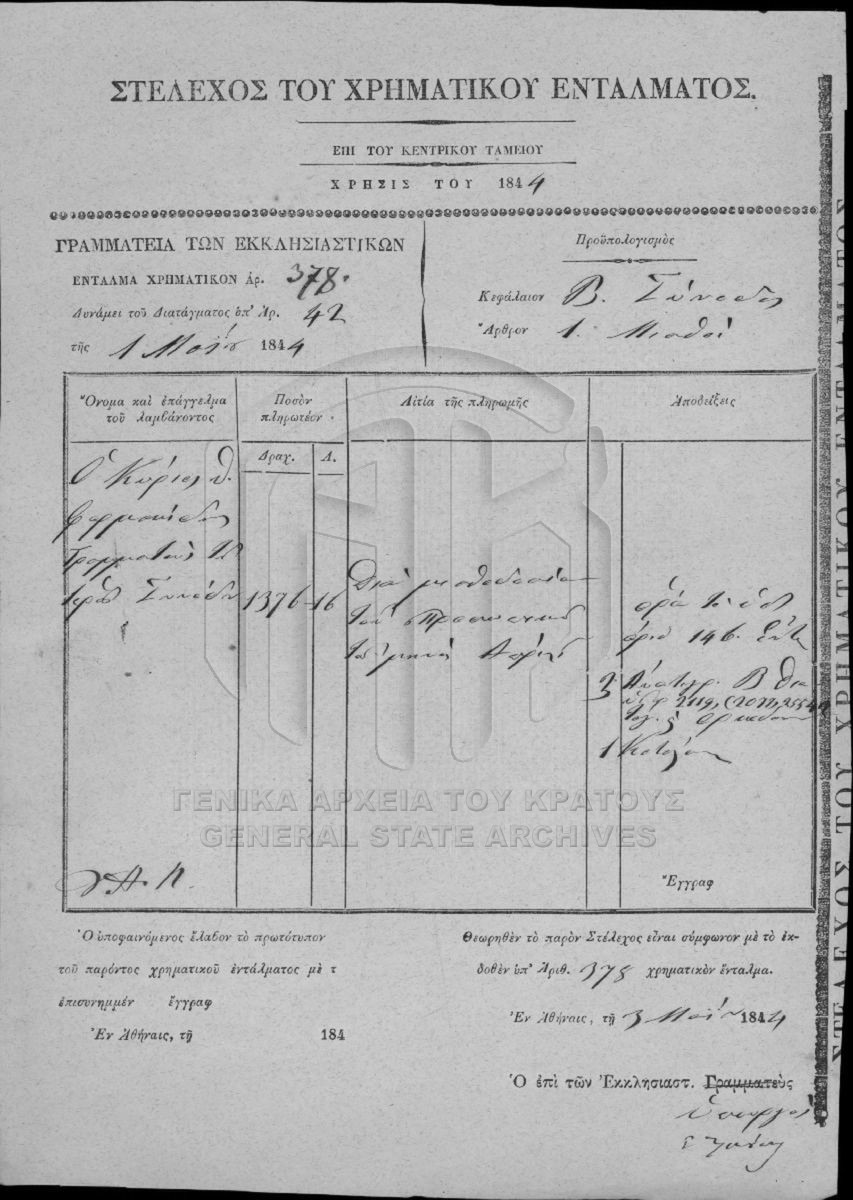 ΣΤΕΛΕΧΟΣ ΤΟΥ ΧΡΗΜΑΤΙΚΟΥ ΕΝΤΑΛΜΑΤΟΣ.
ΕΠΙ ΤΟΥ ΚΕΝΤΡΙΚΟΥ ΤΑΜΕΙΟΥ
ΧΡΗΣΙΣ ΤΟΥ 1844
ΓΡΑΜΜΑΤΕΙΑ ΤΩΝ ΕΚΚΛΗΣΙΑΣΤΙΚΩΝ
ΕΝΤΑΛΜΑ ΧΡΗΜΑΤΙΚΟΝ Ἀρ. 378.
Δυνάμει τοῦ Διατάγματος ὑπ' Ἀρ. 42
τῆς 1 Μαΐου 1844
Προϋπολογισμὸς
Κεφάλαιον Β. Σύνοδος
Ἄρθρον 1. Μισθοὶ
Ὄνομα καὶ ἐπάγγελμα
τοῦ λαμβάνοντος
Ποσὸν
πληρωτέον
Αἰτία τῆς πληρωμῆς
Ἀποδείξεις
Δραχ. Λ.
Ὁ Κύριος Θ.
Φαρμακίδης
Γραμματεὺς τῆς
Ἱερᾶς Συνόδου
1376 16
Διὰ μισθοδοσίαν
τοῦ προσωπικοῦ
τὸν μῆνα
146.
Β
2119,
1
ΓΕΝΙΚΑ ΑΡΧΕΙΑ ΤΟΥ ΚΡΑΤΟΥΣ
GENERAL STATE ARCHIVES
Ἔγγραφ
Ὁ ὑποφαινόμενος ἔλαβον τὸ πρωτότυπον
τοῦ παρόντος χρηματικοῦ ἐντάλματος μὲ τ
ἐπισυνημμέν ἔγγραφ
Ἐν Ἀθήναις, τῇ 184
Θεωρηθὲν τὸ παρὸν Στέλεχος εἶναι σύμφωνον μὲ τὸ ἐκ-
δοθὲν ὑπ' Ἀριθ. 378 χρηματικὸν ἔνταλμα.
Ἐν Ἀθήναις, τῇ 3 Μαΐου 1844
Ὁ ἐπὶ τῶν Ἐκκλησιαστ. Γραμματεὺς
Ὑπουργὸς
ΣΤΕΛΕΧΟΣ ΤΟΥ ΧΡΗΜΑΤΙΚΟΥ ΕΝΤΑΛΜΑΤΟΣ